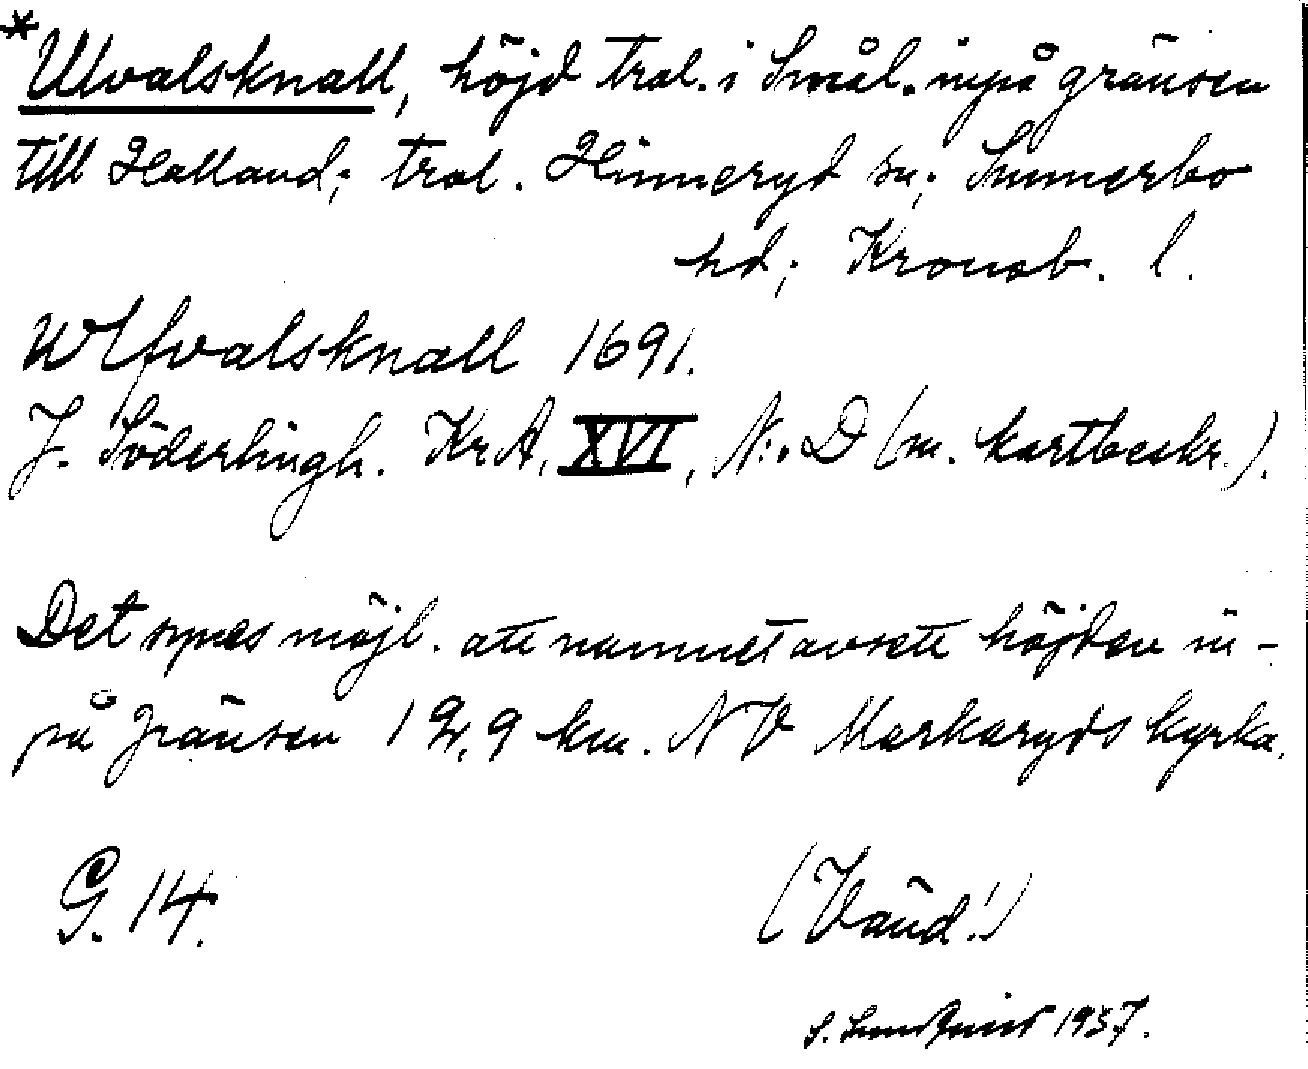 *Ulvalsknall, höjd trol. i Smål. inpå gränsen
till Halland; trol. Hinneryd sn; Sunnerbo
hd; Kronob. l.
Ulfvalsknall 1691.
J. Söderlingh. KrA, XVI, N:o D (m. kartbeskr.).
Det synes möjl. att namnet avsett höjden in-
på gränsen 12,9 km. NV Markaryds kyrka.
G. 14.
(Vänd!)
S. Sundqvist 1937.